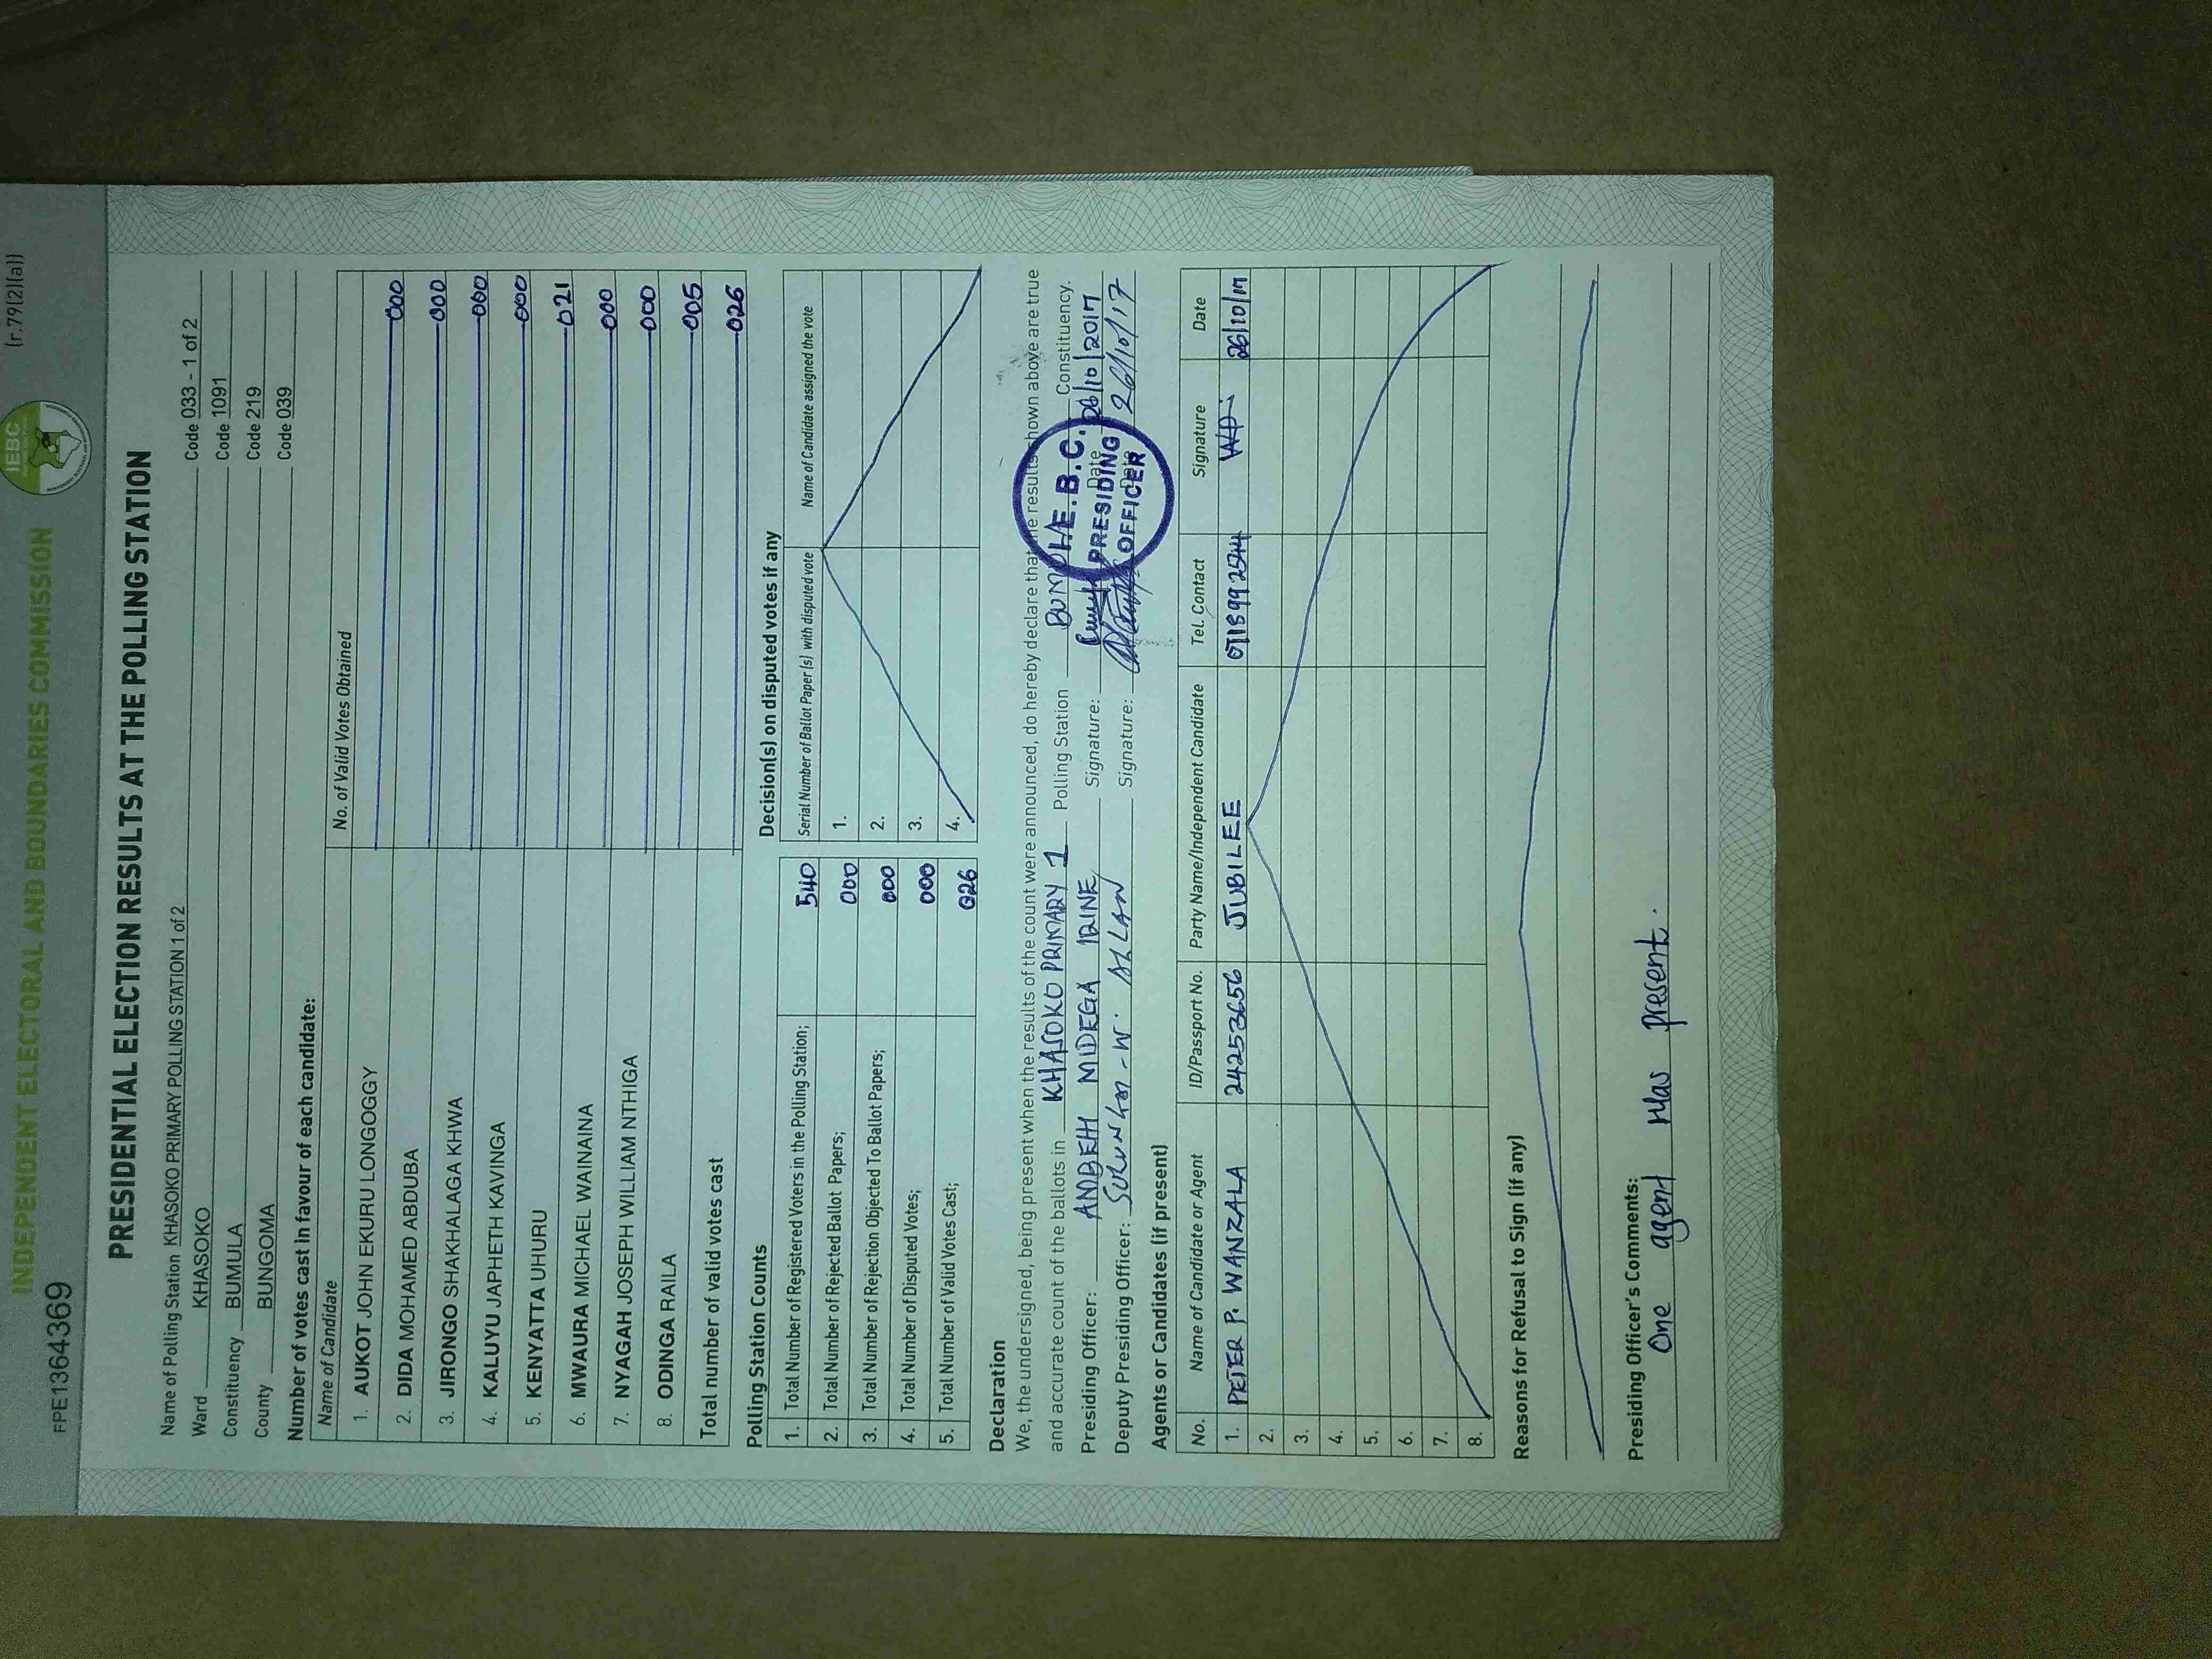 (r.79(2)(a))
INDEPENDENT ELECTORAL AND BOUNDARIES COMMISSION
IEBC
FPE1364369
PRESIDENTIAL ELECTION RESULTS AT THE POLLING STATION
Name of Polling Station KHASOKO PRIMARY POLLING STATION 1 of 2 Code 033 - 1 of 2
Ward KHASOKO Code 1091
Constituency BUMULA Code 219
County BUNGOMA Code 039
Number of votes cast in favour of each candidate:
Name of Candidate No. of Valid Votes Obtained
1. AUKOT JOHN EKURU LONGOGGY 000
2. DIDA MOHAMED ABDUBA 000
3. JIRONGO SHAKHALAGA KHWA 000
4. KALUYU JAPHETH KAVINGA 000
5. KENYATTA UHURU 021
6. MWAURA MICHAEL WAINAINA 000
7. NYAGAH JOSEPH WILLIAM NTHIGA 000
8. ODINGA RAILA 005
Total number of valid votes cast 026
Polling Station Counts
1. Total Number of Registered Voters in the Polling Station; 540
2. Total Number of Rejected Ballot Papers; 000
3. Total Number of Rejection Objected To Ballot Papers; 000
4. Total Number of Disputed Votes; 000
5. Total Number of Valid Votes Cast; 026
Decision(s) on disputed votes if any
Serial Number of Ballot Paper (s) with disputed vote Name of Candidate assigned the vote
1.
2.
3.
4.
Declaration
We, the undersigned, being present when the results of the count were announced, do hereby declare that the results shown above are true
and accurate count of the ballots in KHASOKO PRIMARY 1 Polling Station Constituency.
Presiding Officer: ANDBEHI MIDEGA IRINE Signature: Date 26/10/2017
Deputy Presiding Officer: W. ALLAN Signature: Date 26/10/17
I.E.B.C.
PRESIDING
OFFICER
Agents or Candidates (if present)
No. Name of Candidate or Agent ID/Passport No. Party Name/Independent Candidate Tel. Contact Signature Date
1. PETER P. WANZALA 24253656 JUBILEE 26/10/17
2.
3.
4.
5.
6.
7.
8.
Reasons for Refusal to Sign (if any)
Presiding Officer's Comments:
One agent was present.